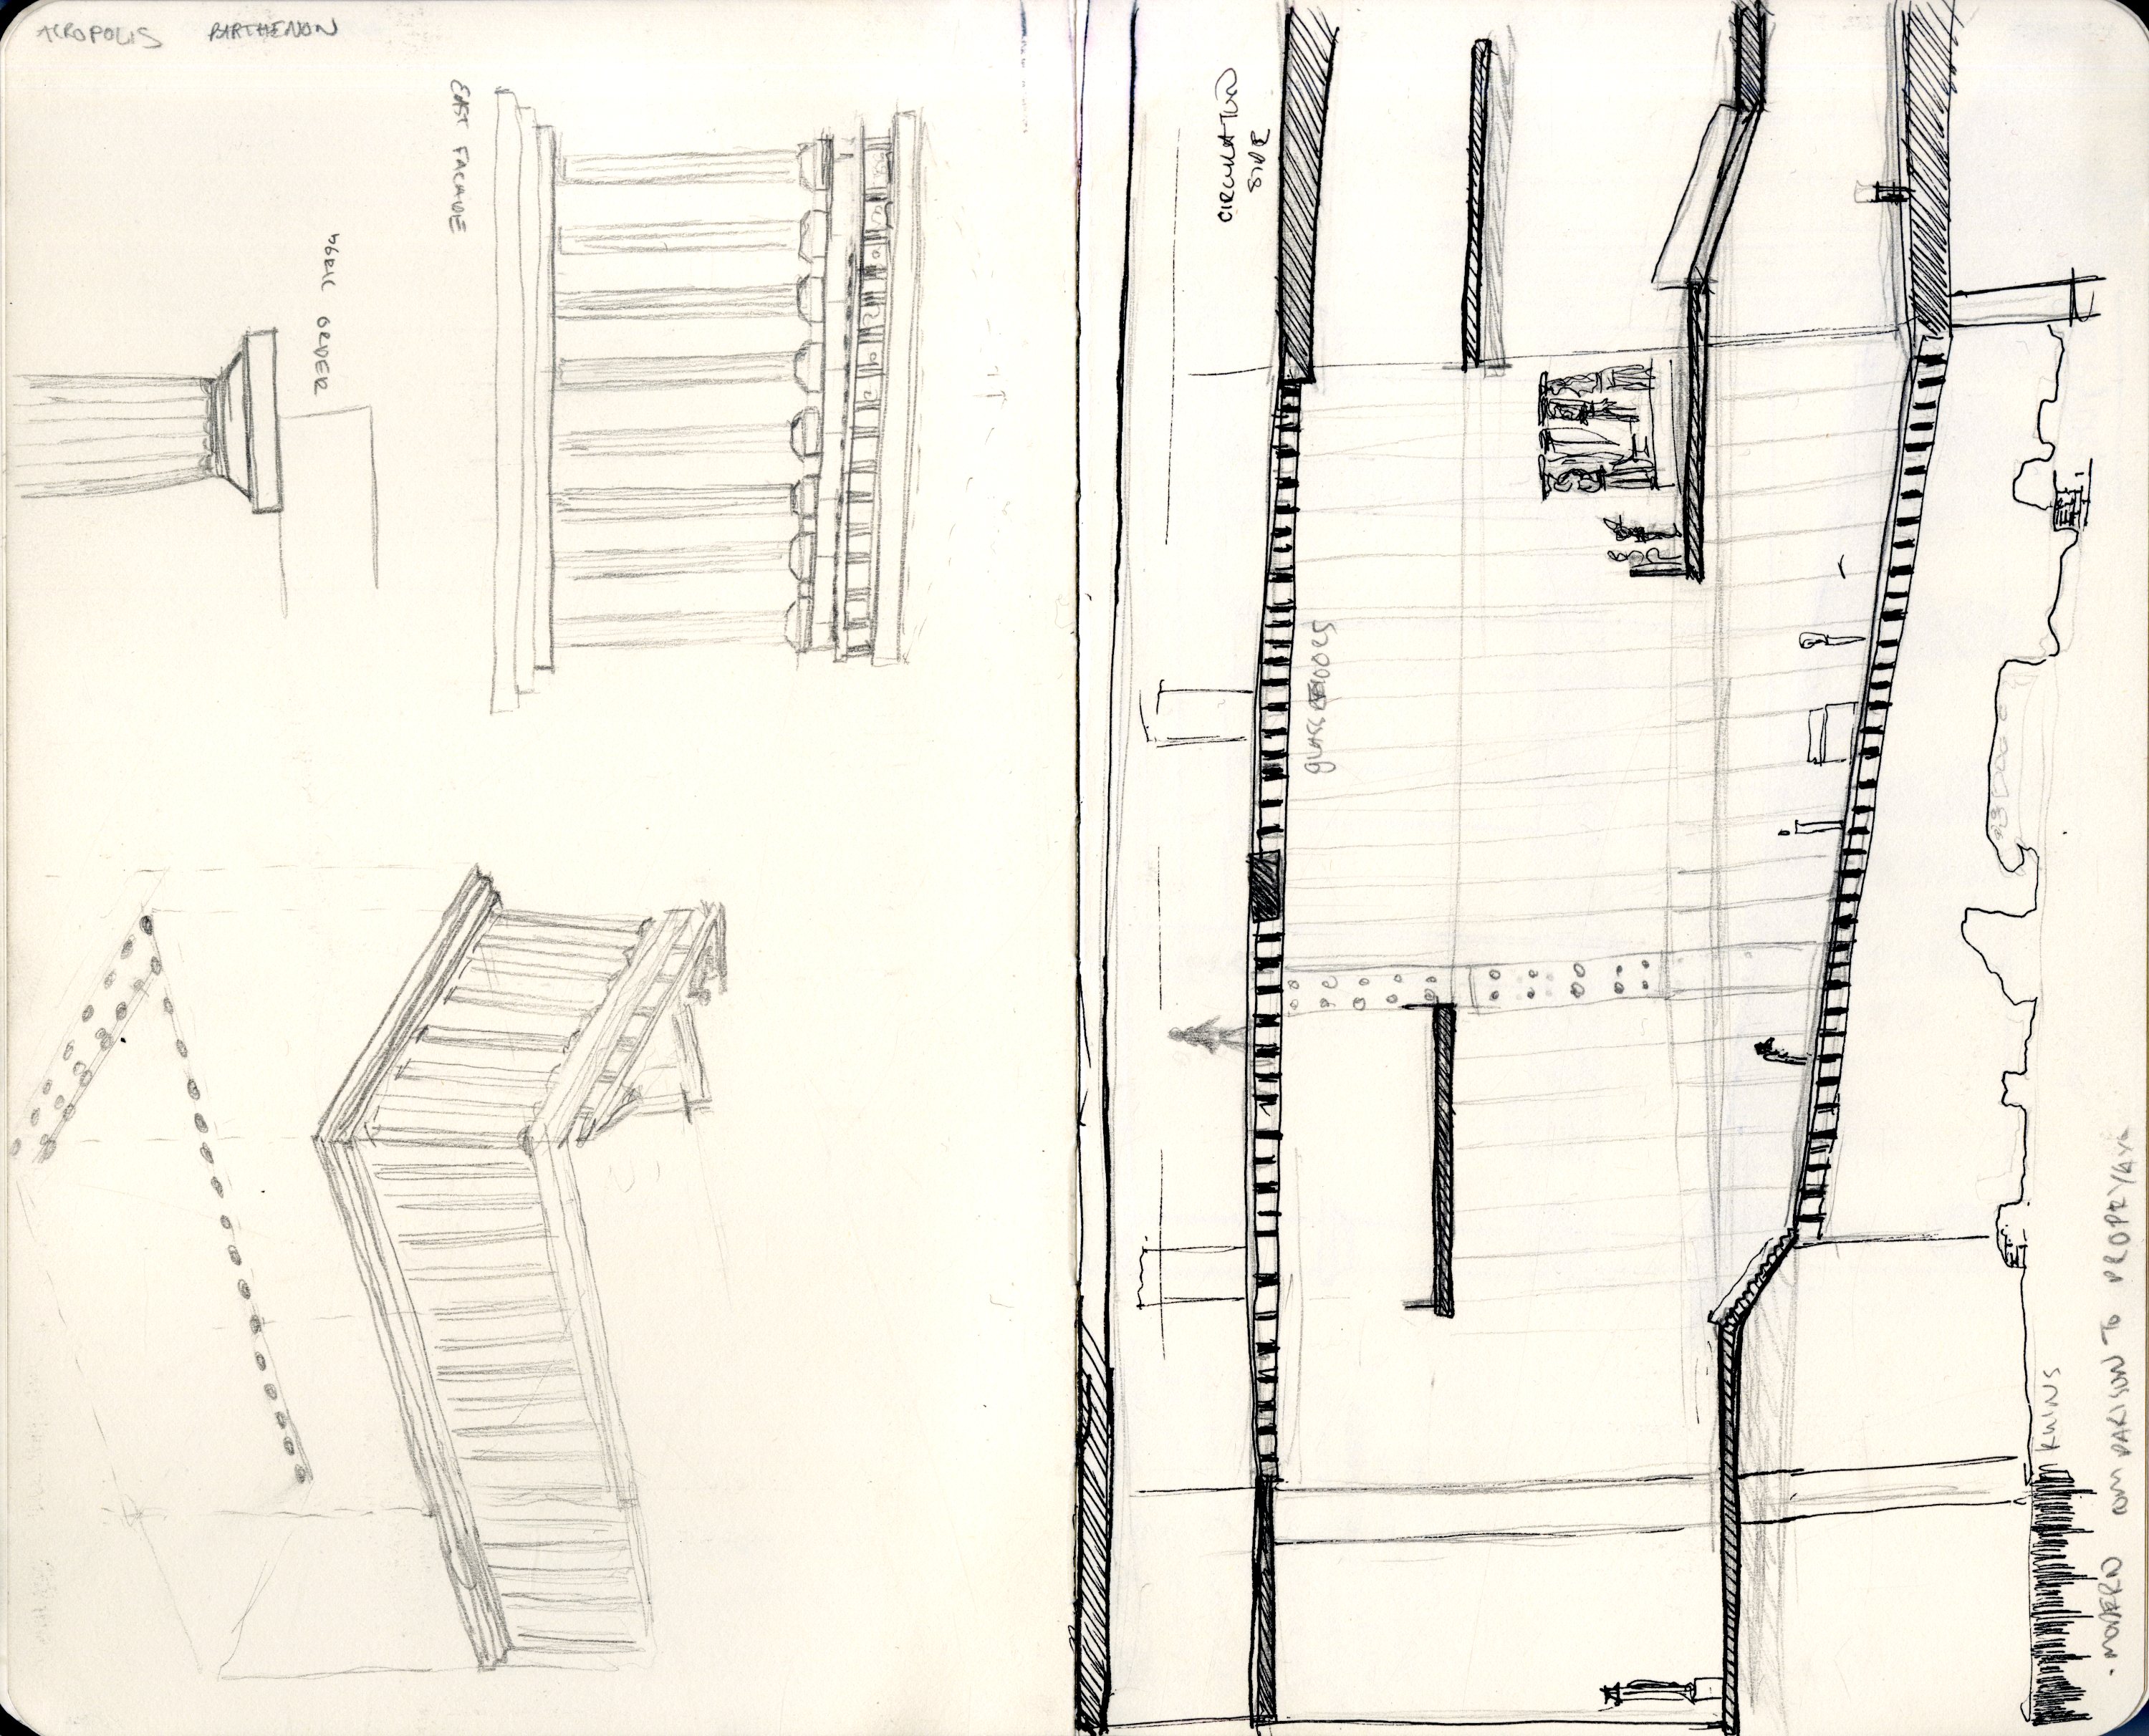 ACROPOLIS PARTHENON
EAST FACADE
DORIC ORDER
CIRCULATION
SIDE
GLASS FLOORS
RUINS
· MODERN COMPARISON TO PROPRYLAYA